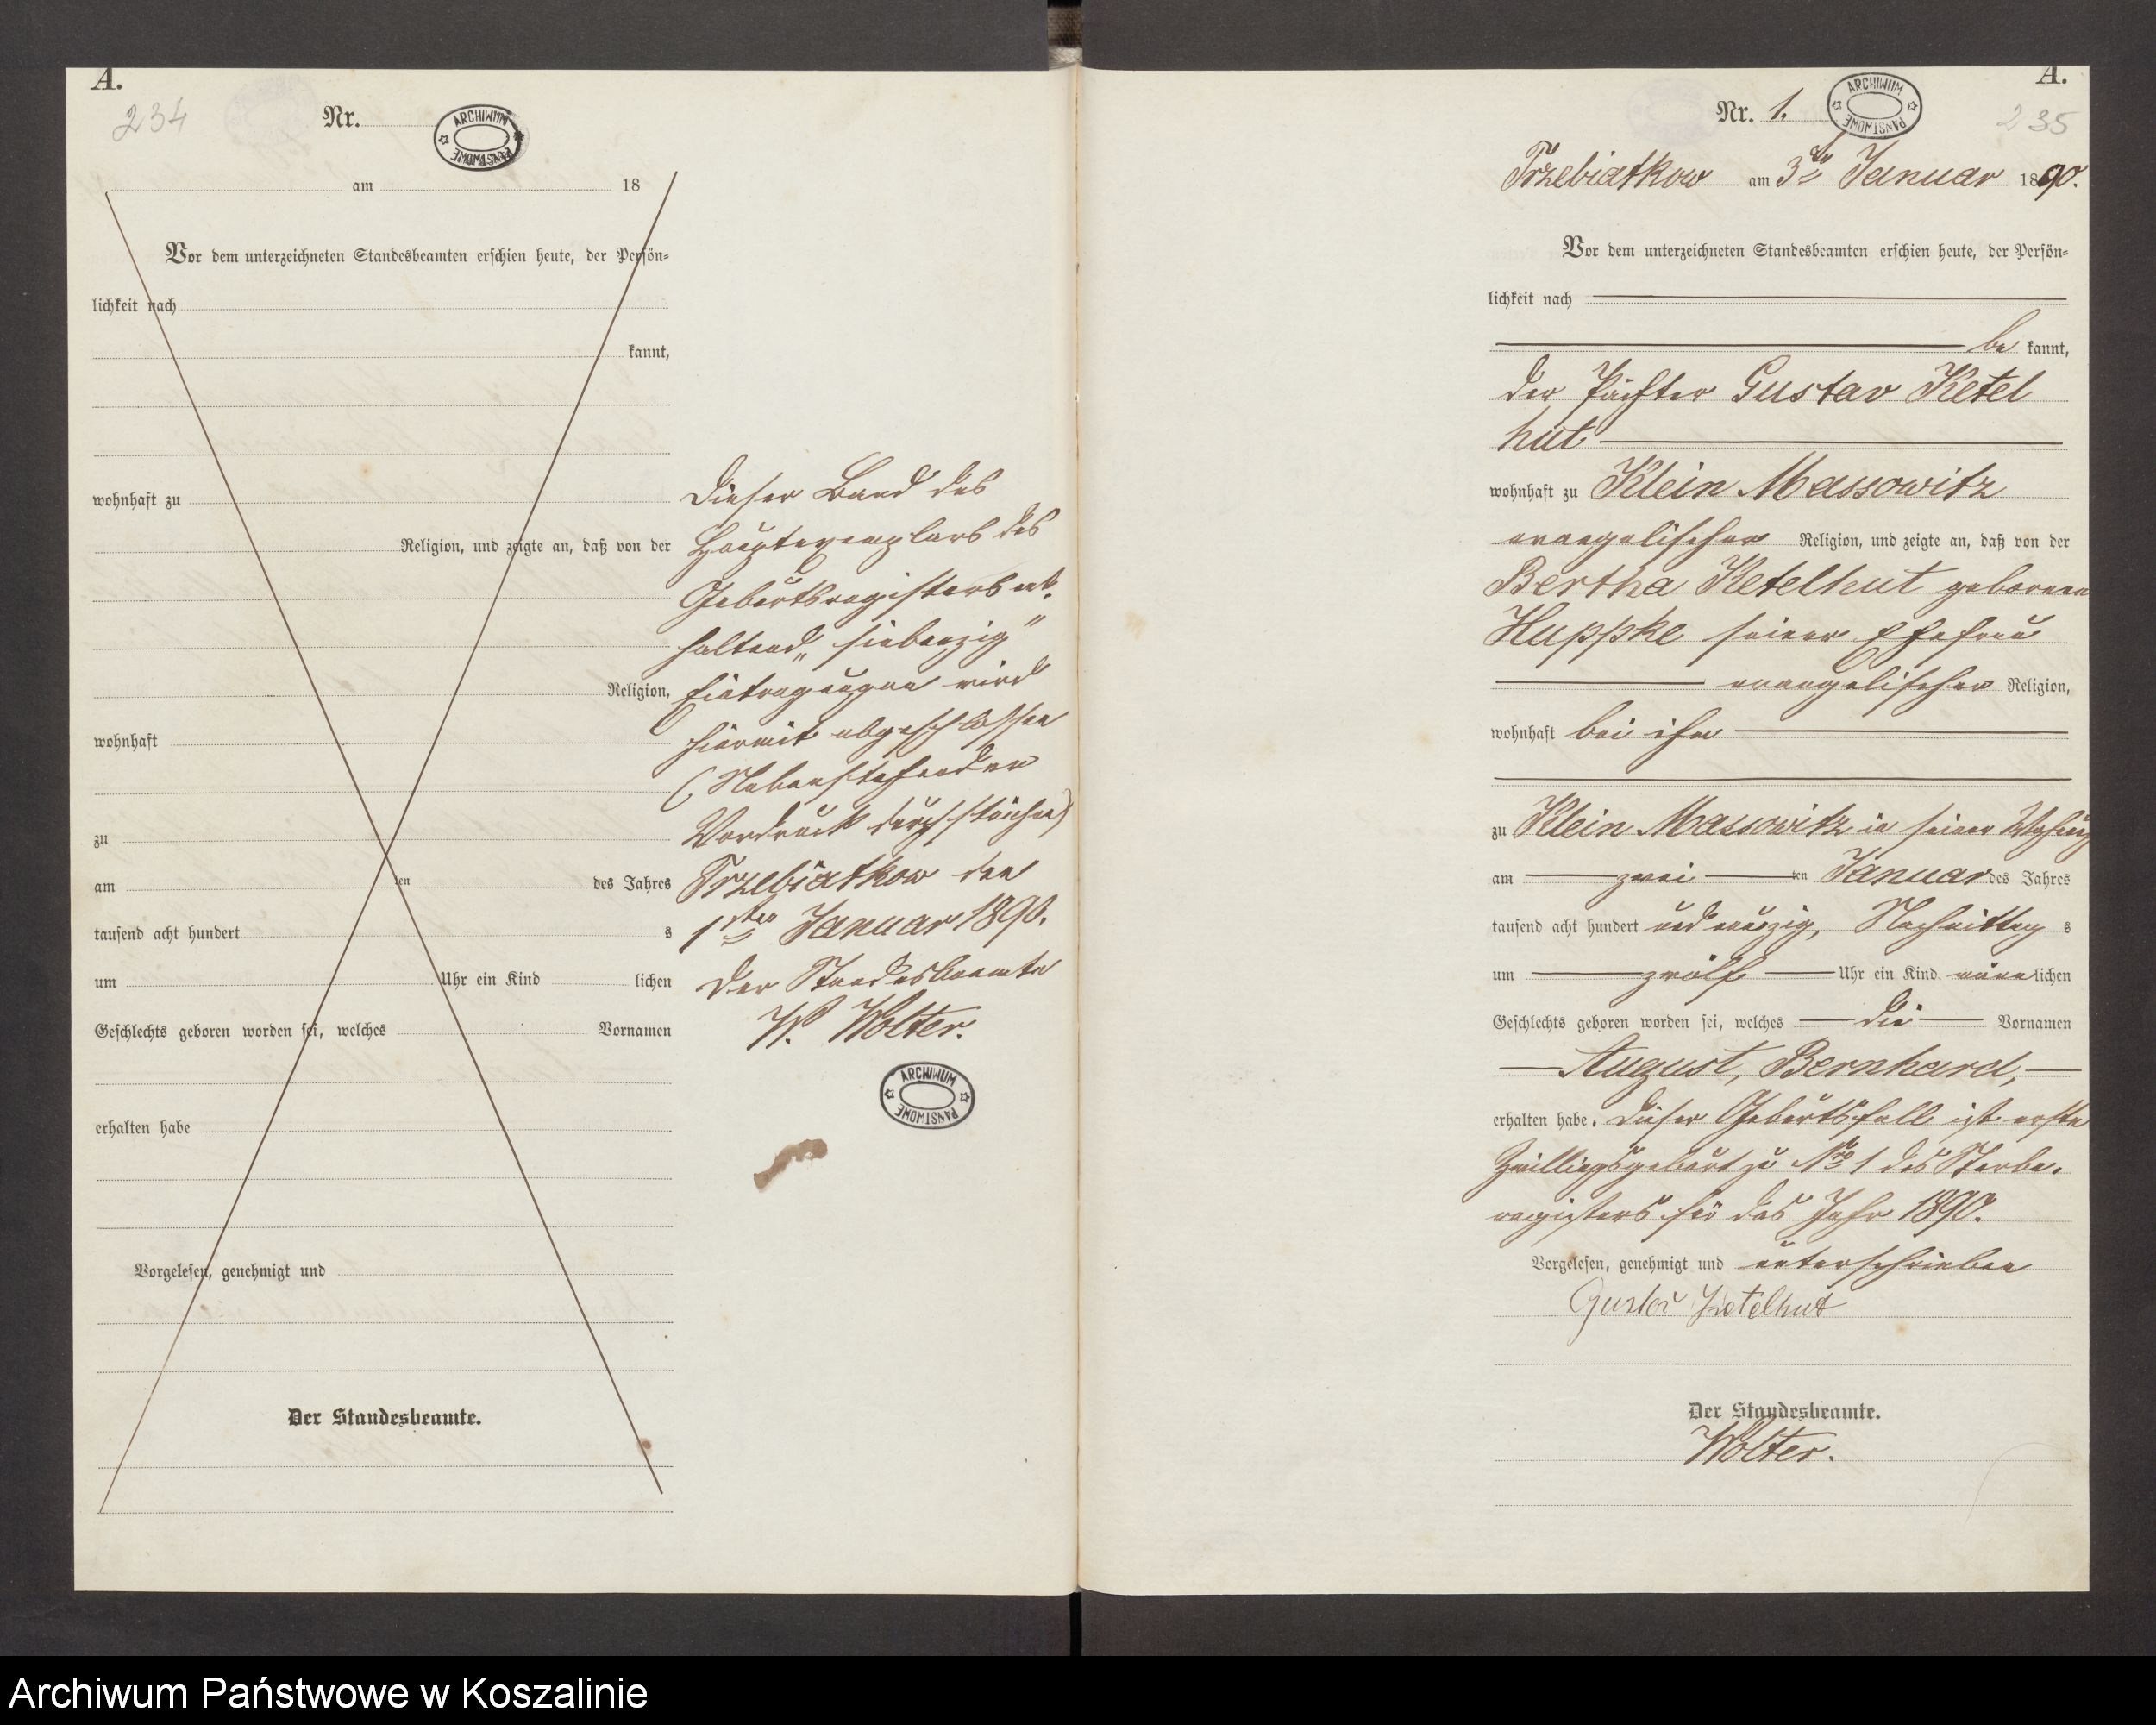 A.
234
Nr.
ARCHIWUM PAŃSTWOWE
am 18
Vor dem unterzeichneten Standesbeamten erschien heute, der Persön-
lichkeit nach
kannt,
wohnhaft zu
Religion, und zeigte an, daß von der
Religion,
wohnhaft
zu
am ten des Jahres
tausend acht hundert s
um Uhr ein Kind lichen
Geschlechts geboren worden sei, welches Vornamen
erhalten habe
Vorgelesen, genehmigt und
Der Standesbeamte.
Dieser Band des
Hauptexemplars des
Geburtsregisters ent-
haltend „siebenzig"
Eintragungen wird
hiermit abgeschlossen
(Nebenstehender
Vordruck durchstrichen)
Trzebiatkow den
1sten Januar 1890.
Der Standesbeamte
W. Wolter.
ARCHIWUM PAŃSTWOWE
A.
235
Nr. 1.
ARCHIWUM PAŃSTWOWE
Trzebiatkow am 3ten Januar 1890.
Vor dem unterzeichneten Standesbeamten erschien heute, der Persön-
lichkeit nach
be kannt,
der Pächter Gustav Ketel
hut
wohnhaft zu Klein Massowitz
evangelischer Religion, und zeigte an, daß von der
Bertha Ketelhut geborenen
Huppke seiner Ehefrau
evangelischer Religion,
wohnhaft bei ihm
zu Klein Massowitz in seiner Wohnung
am zwei ten Januar des Jahres
tausend acht hundert und neunzig, Nachmittag s
um zwölf Uhr ein Kind männ lichen
Geschlechts geboren worden sei, welches die Vornamen
August, Bernhard,
erhalten habe. Dieser Geburtsfall ist erste
Zwillingsgeburt zu Nro 1 des Sterbe-
registers für das Jahr 1890.
Vorgelesen, genehmigt und unterschrieben
Gustav Ketelhut
Der Standesbeamte.
Wolter.
Archiwum Państwowe w Koszalinie